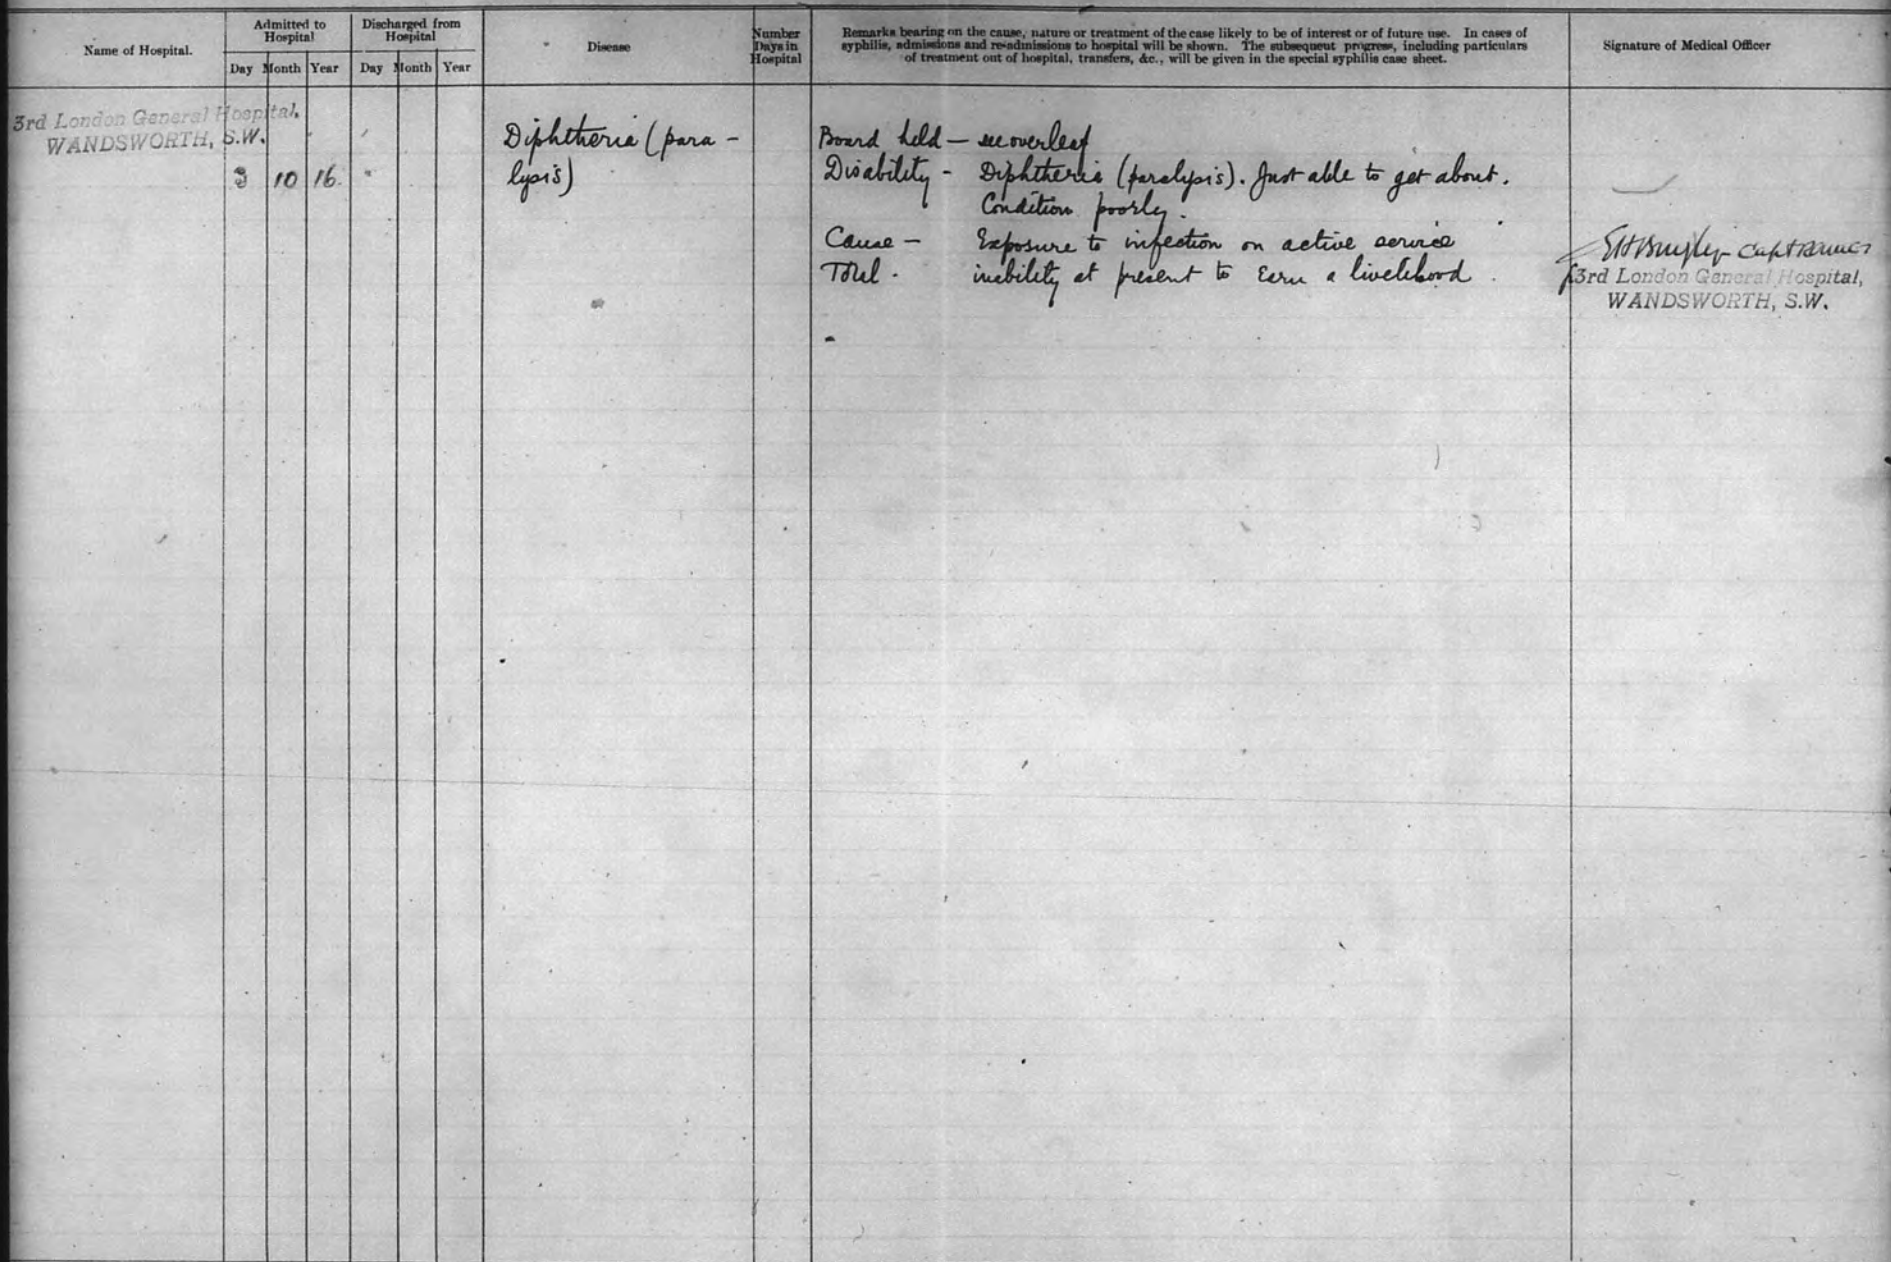 Name of Hospital.
Admitted to
Hospital
Day Month Year
Discharged from
Hospital
Day Month Year
Disease
Number
Days in
Hospital
Remarks bearing on the cause, nature or treatment of the case likely to be of interest or of future use. In cases of
syphilis, admissions and re-admissions to hospital will be shown. The subsequent progress, including particulars
of treatment out of hospital, transfers, &c., will be given in the special syphilis case sheet.
Signature of Medical Officer
3rd London General Hospital.
WANDSWORTH, S.W.
3 10 16.
Diphtheria (para -
lysis)
Board held — see overleaf
Disability - Diphtheria (paralysis). Just able to get about.
Condition poorly.
Cause — Exposure to infection on active service
Total. inability at present to earn a livelihood.
Capt
3rd London General Hospital,
WANDSWORTH, S.W.